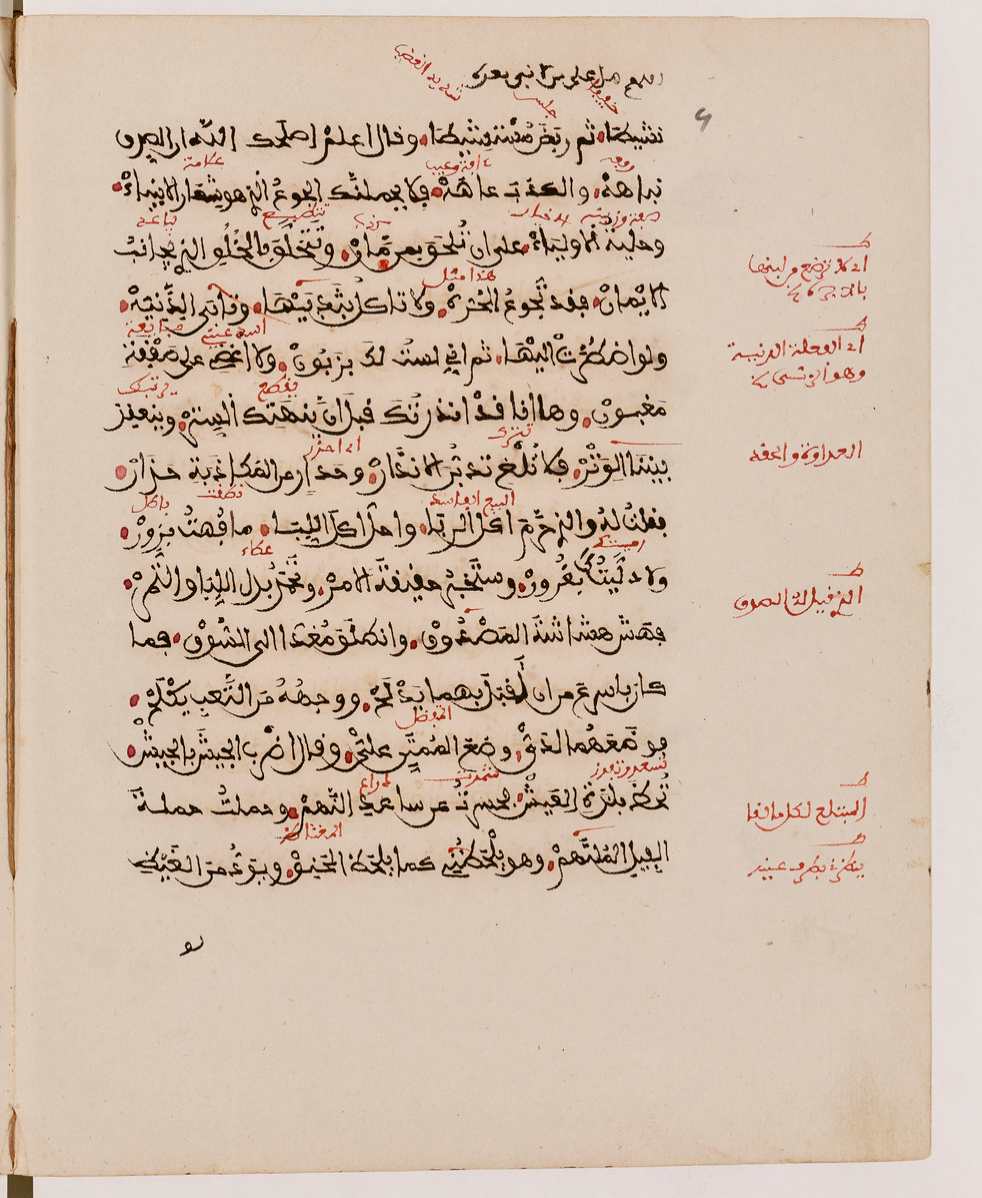 نشيطا ثم ربض مستشيطا وقال اعلم اصلحك الله ان الصدق
نباهة والكذب عاهة فلا يحملنك الجوع الذي هو شعار الانبياء
وحلية الاولياء على ان تلحق بمن مان وتتخلق بالخلق الذي يجانب
الايمان فقد تجوع الحرة ولا تاكل بثدييها وتابى الدنية
ولو اضطرت اليها ثم اني لست لك بزبون ولا اغضي على صفقة
مغبون وها انا قد انذرتك قبل ان ينهتك الستر وينعقد
بيننا الوتر فلا تلغ تدبر الانذار وحذار من المكاذبة حذار
فقلت له والذي حرم اكل الربا واحل اكل اللبا ما فهت بزور
ولا دليتك بغرور وستخبر حقيقة الامر وتحمد بذل اللبا والتمر
فهش هشاشة المصدوق وانطلق مغذا الى السوق فما
كان باسرع من ان اقبل بهما يدلح ووجهه من التعب يكلح
فوضعهما لدي وضع الممتن علي وقال اضرب الجيش بالجيش
تحظ بلذة العيش فحسرت عن ساعد النهم وحملت حملة
الفيل الملتهم وهو يلحظني كما يلحظ الحنق ويود من الغيظ
شديد الغضب
جلس
علامة
هذا مثل
يقطع
تترك
اي احذر
البيع الفاسد
باطل
عطاء
المتفضل
ذراع
العداوة والحقد
المبتلع لكل ما لقا
ينظرني بطرف عينه